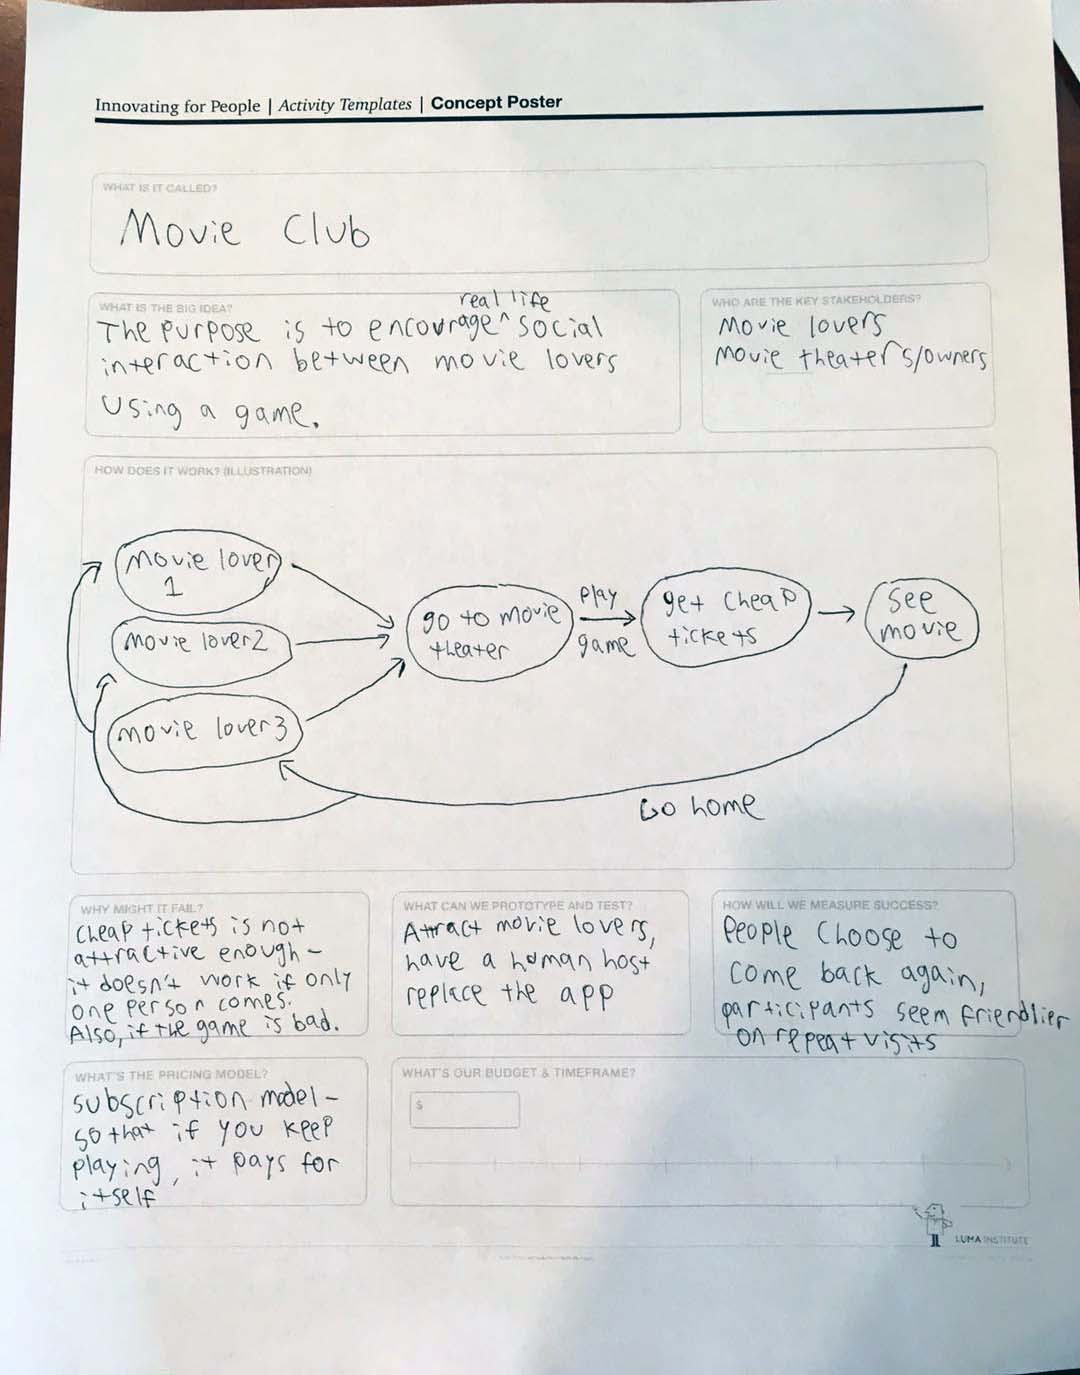 Innovating for People | Activity Templates | Concept Poster
WHAT IS IT CALLED?
Movie Club
WHAT IS THE BIG IDEA?
real life
The purpose is to encourage ^ social
interaction between movie lovers
Using a game.
WHO ARE THE KEY STAKEHOLDERS?
Movie lovers
Movie theaters/owners
HOW DOES IT WORK? (ILLUSTRATION)
Movie lover
1
Movie lover2
movie lover3
go to movie
theater
play
game
get cheap
tickets
see
movie
Go home
WHY MIGHT IT FAIL?
Cheap tickets is not
attractive enough –
it doesn't work if only
one person comes.
Also, if the game is bad.
WHAT CAN WE PROTOTYPE AND TEST?
Attract movie lovers,
have a human host
replace the app
HOW WILL WE MEASURE SUCCESS?
People choose to
come back again,
participants seem friendlier
on repeat visits
WHAT'S THE PRICING MODEL?
subscription model –
so that if you keep
playing, it pays for
itself
WHAT'S OUR BUDGET & TIMEFRAME?
$
LUMA INSTITUTE